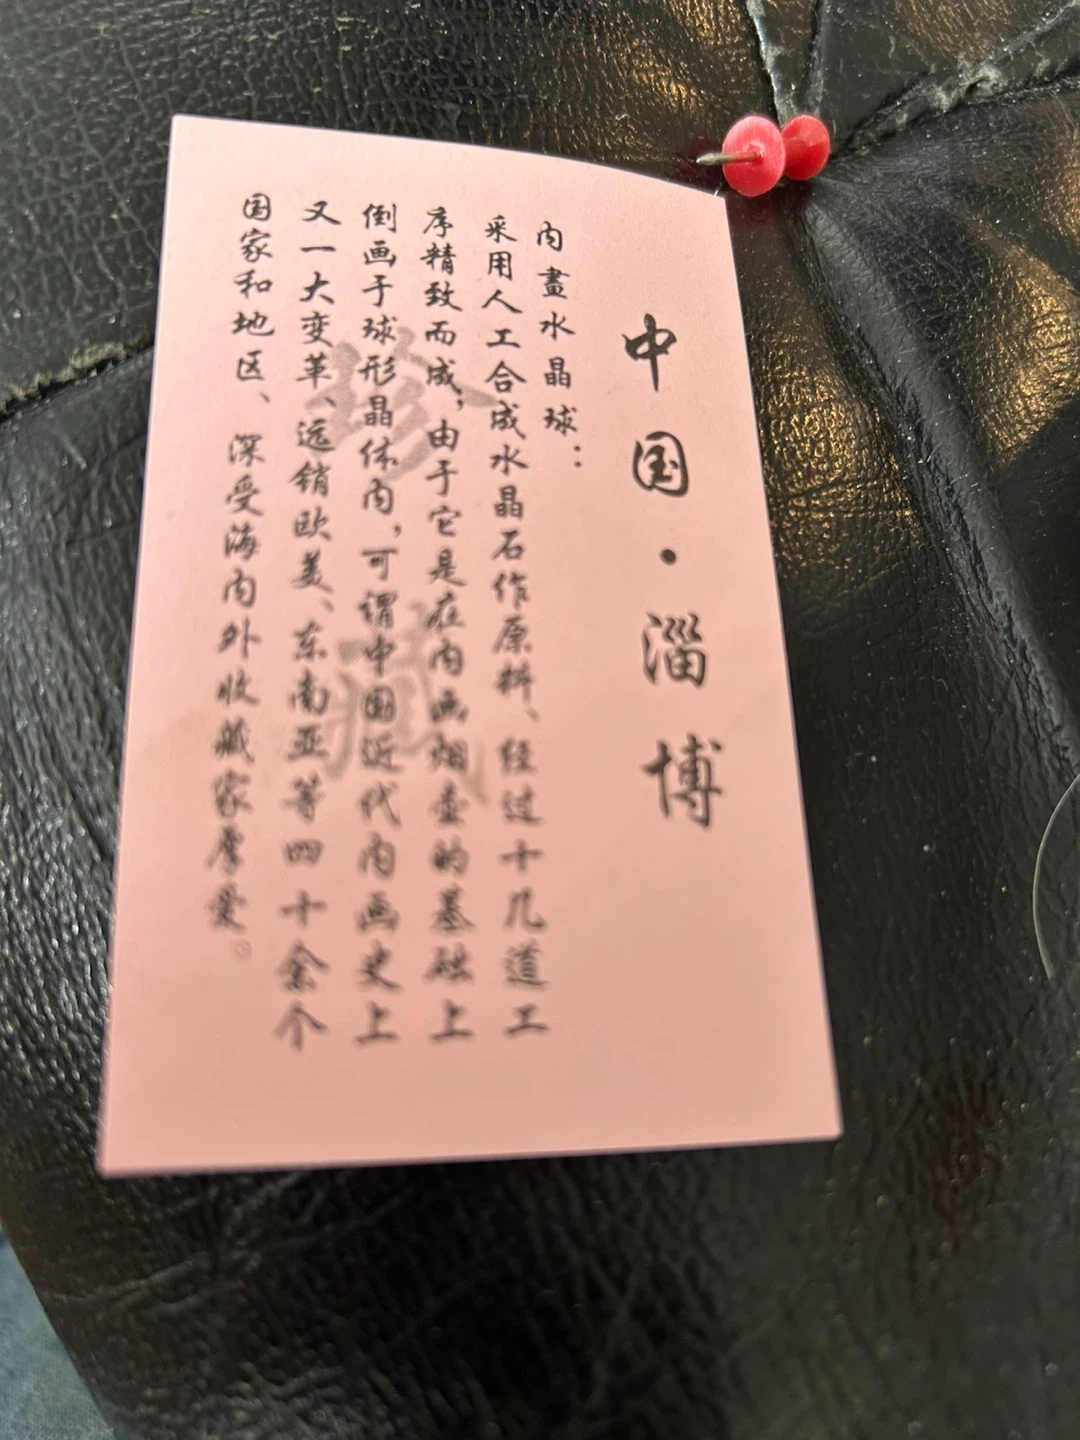 中国·淄博
内畫水晶球：
采用人工合成水晶石作原料、经过十几道工
序精致而成，由于它是在内画烟壶的基础上
倒画于球形晶体内，可谓中国近代内画史上
又一大变革、远销欧美、东南亚等四十余个
国家和地区、深受海内外收藏家厚爱。
珍藏